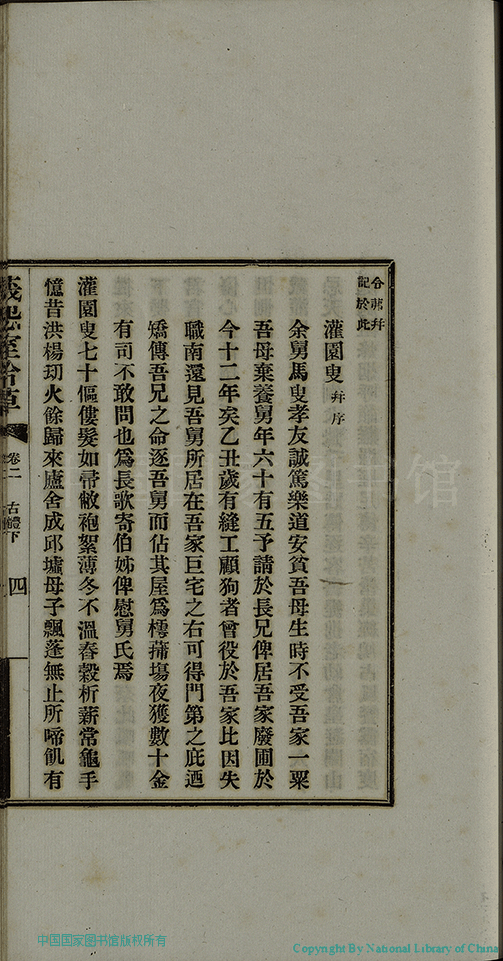 合并
記於此
灌園叟 并序
余舅馬叟孝友誠篤樂道安貧吾母生時不受吾家一粟
吾母棄養舅年六十有五予請於長兄俾居吾家廢圃於
今十二年矣乙丑歲有縫工顧狗者曾役於吾家比因失
職南還見吾舅所居在吾家巨宅之右可得門第之庇迺
矯傳吾兄之命逐吾舅而佔其屋爲樗蒱塲夜獲數十金
有司不敢問也爲長歌寄伯姊俾慰舅氏焉
灌園叟七十傴僂髮如帚敝袍絮薄冬不溫舂穀析薪常龜手
憶昔洪楊刧火餘歸來廬舍成邱墟母子飄蓬無止所啼飢有
室詅草
卷二
古體下
四
中国国家图书馆版权所有
Copyright By National Library of China